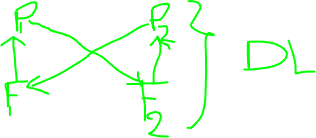 P1 P2
F1 F2
DL